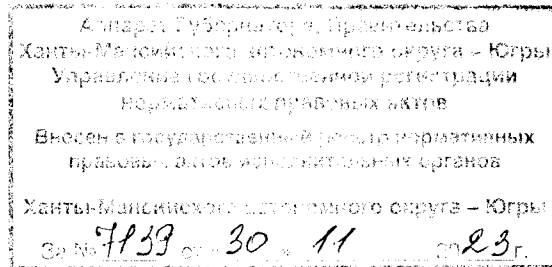 Аппарат Губернатора, Правительства
Ханты-Мансийского автономного округа – Югры
Управление государственной регистрации
нормативных правовых актов
Внесен в государственный регистр нормативных
правовых актов исполнительных органов
Ханты-Мансийского автономного округа – Югры
За № 7139 от « 30 » 11 2023 г.